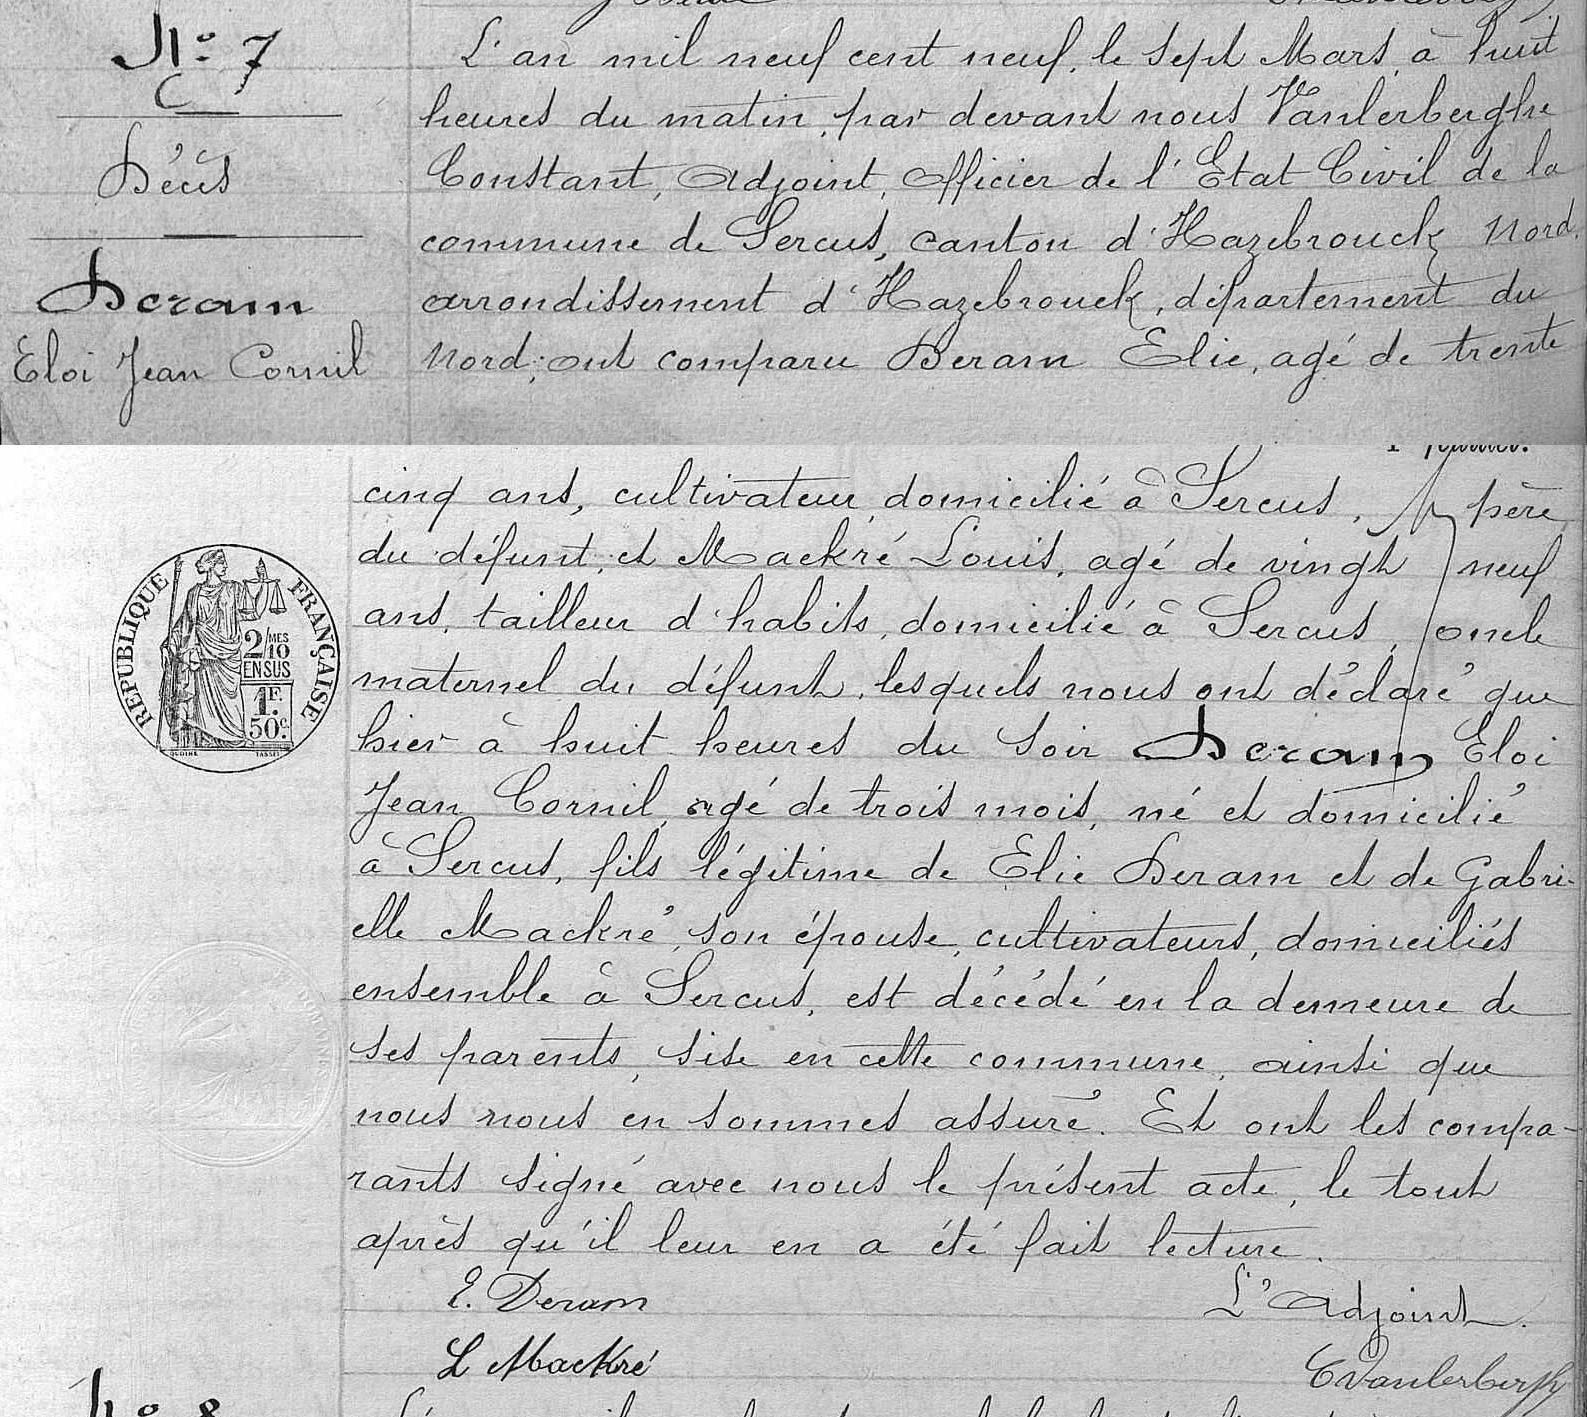 N° 7
Décès
Deram
Eloi Jean Cornil
L'an mil neuf cent neuf, le sept Mars, à huit
heures du matin, par devant nous Vanlerberghe
Constant, Adjoint, Officier de l'Etat Civil de la
commune de Sercus, canton d'Hazebrouck Nord,
arrondissement d'Hazebrouck, département du
Nord, ont comparu Deram Elie, agé de trente
cinq ans, cultivateur, domicilié à Sercus, père
du défunt, et Mackré Louis, agé de vingt neuf
ans, tailleur d'habits, domicilié à Sercus, oncle
maternel du défunt, lesquels nous ont déclaré que
hier à huit heures du soir Deram Eloi
Jean Cornil, agé de trois mois, né et domicilié
à Sercus, fils légitime de Elie Deram et de Gabri-
elle Mackré, son épouse, cultivateurs, domiciliés
ensemble à Sercus, est décédé en la demeure de
ses parents, sise en cette commune, ainsi que
nous nous en sommes assuré. Et ont les compa-
rants signé avec nous le présent acte, le tout
après qu'il leur en a été fait lecture.
E. Deram
L'Adjoint.
L Mackré
C Vanlerberghe
RÉPUBLIQUE FRANÇAISE
2/10 MES
EN SUS
1F.
50c.
OUDINÉ
TASSET
N° 8